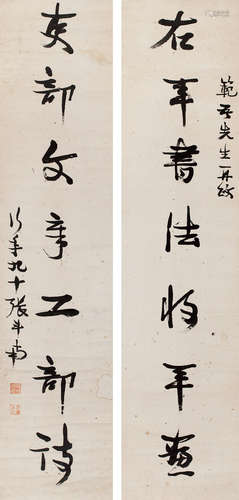 範吾先生
右軍書法將軍畫
吏部文章工部詩
行年九十張斗南